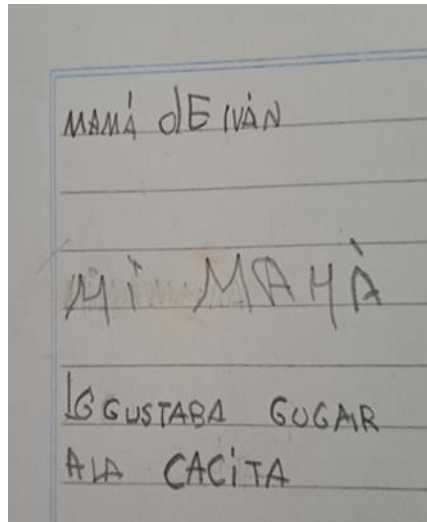 MAMÁ dE IVÁN
Mi MAMÀ
lE GUSTABA GUGAR
A LA CACiTA